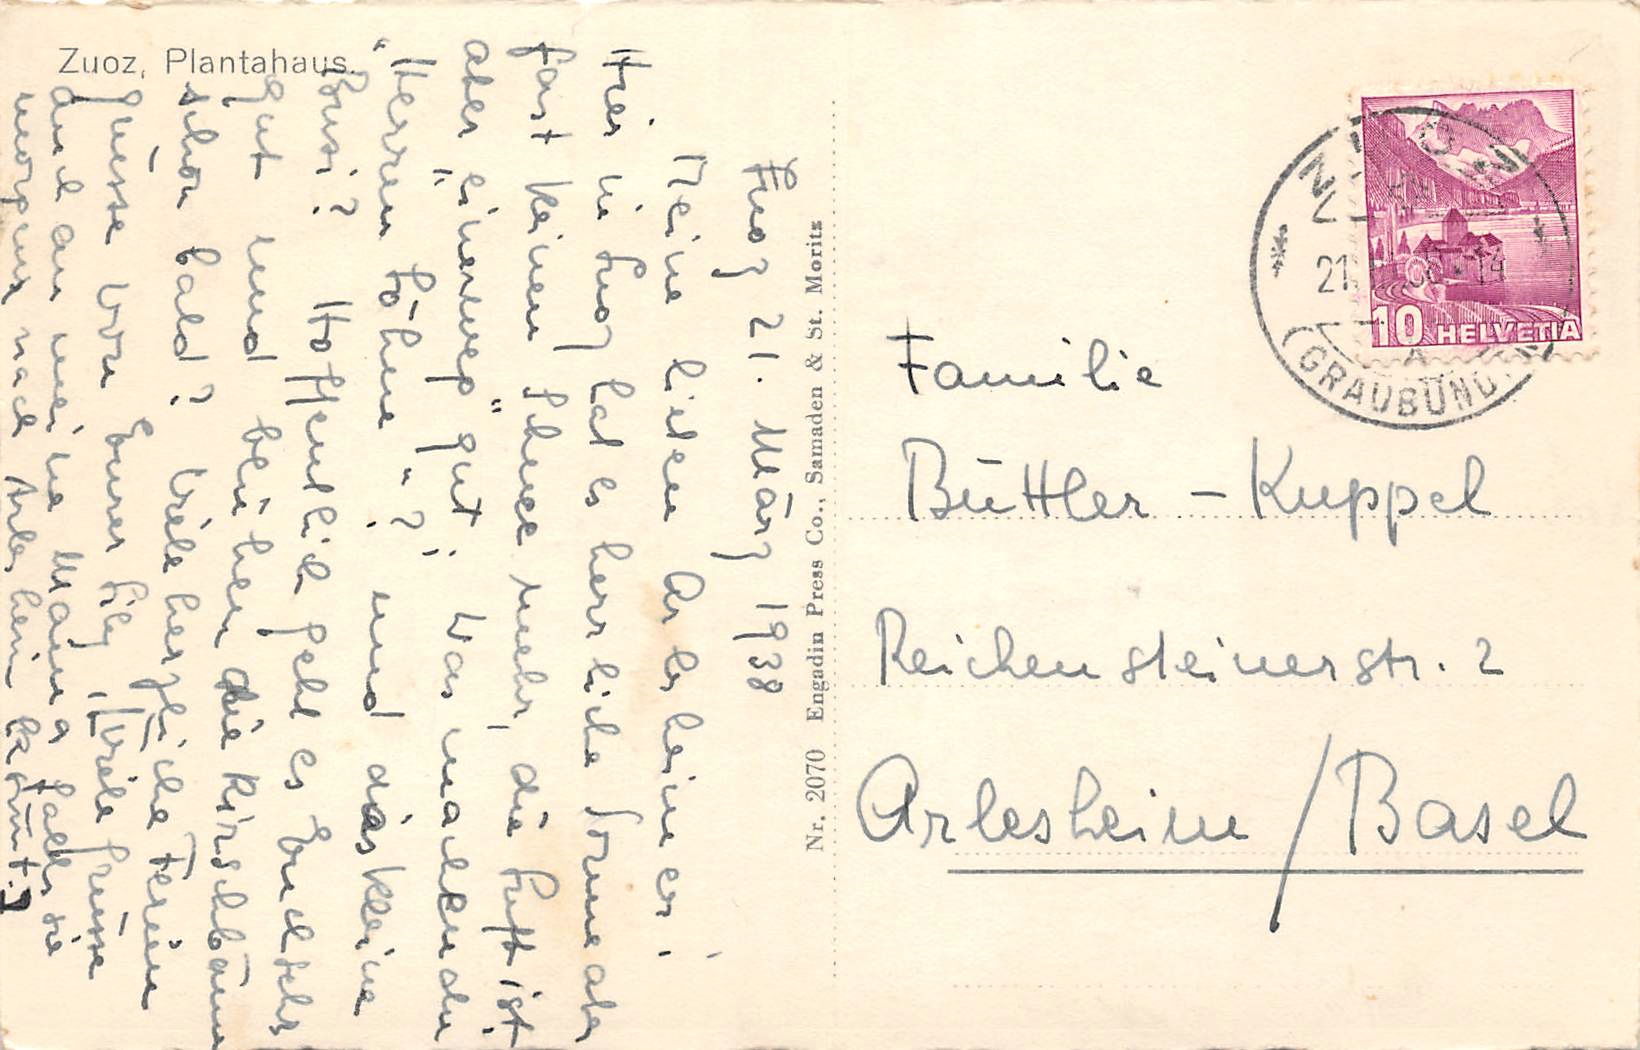 Zuoz, Plantahaus.
Zuoz 21. März 1938
Meine lieben Arlesheimer,
Hier in Zuoz hat es herrliche Sonne aber
fast keinen Schnee mehr, die Luft ist
aber einesweg gut! Was machen die
"Herren Söhne"? und das kleine
Busi? Hoffentlich geht es Euch sehr
gut und blühen die Kirschbäume
schon bald? Viele herzliche Ferien
grüsse von Eurer Lily, (Viele Grüsse
auch an meine Mama falls sie
morgens nach Arlesheim kommt.)
Nr. 2070 Engadin Press Co., Samaden & St. Moritz
Familie
Büttler - Kuppel
Reichensteinerstr. 2
Arlesheim / Basel
10 HELVETIA
21
14
(GRAUBÜND